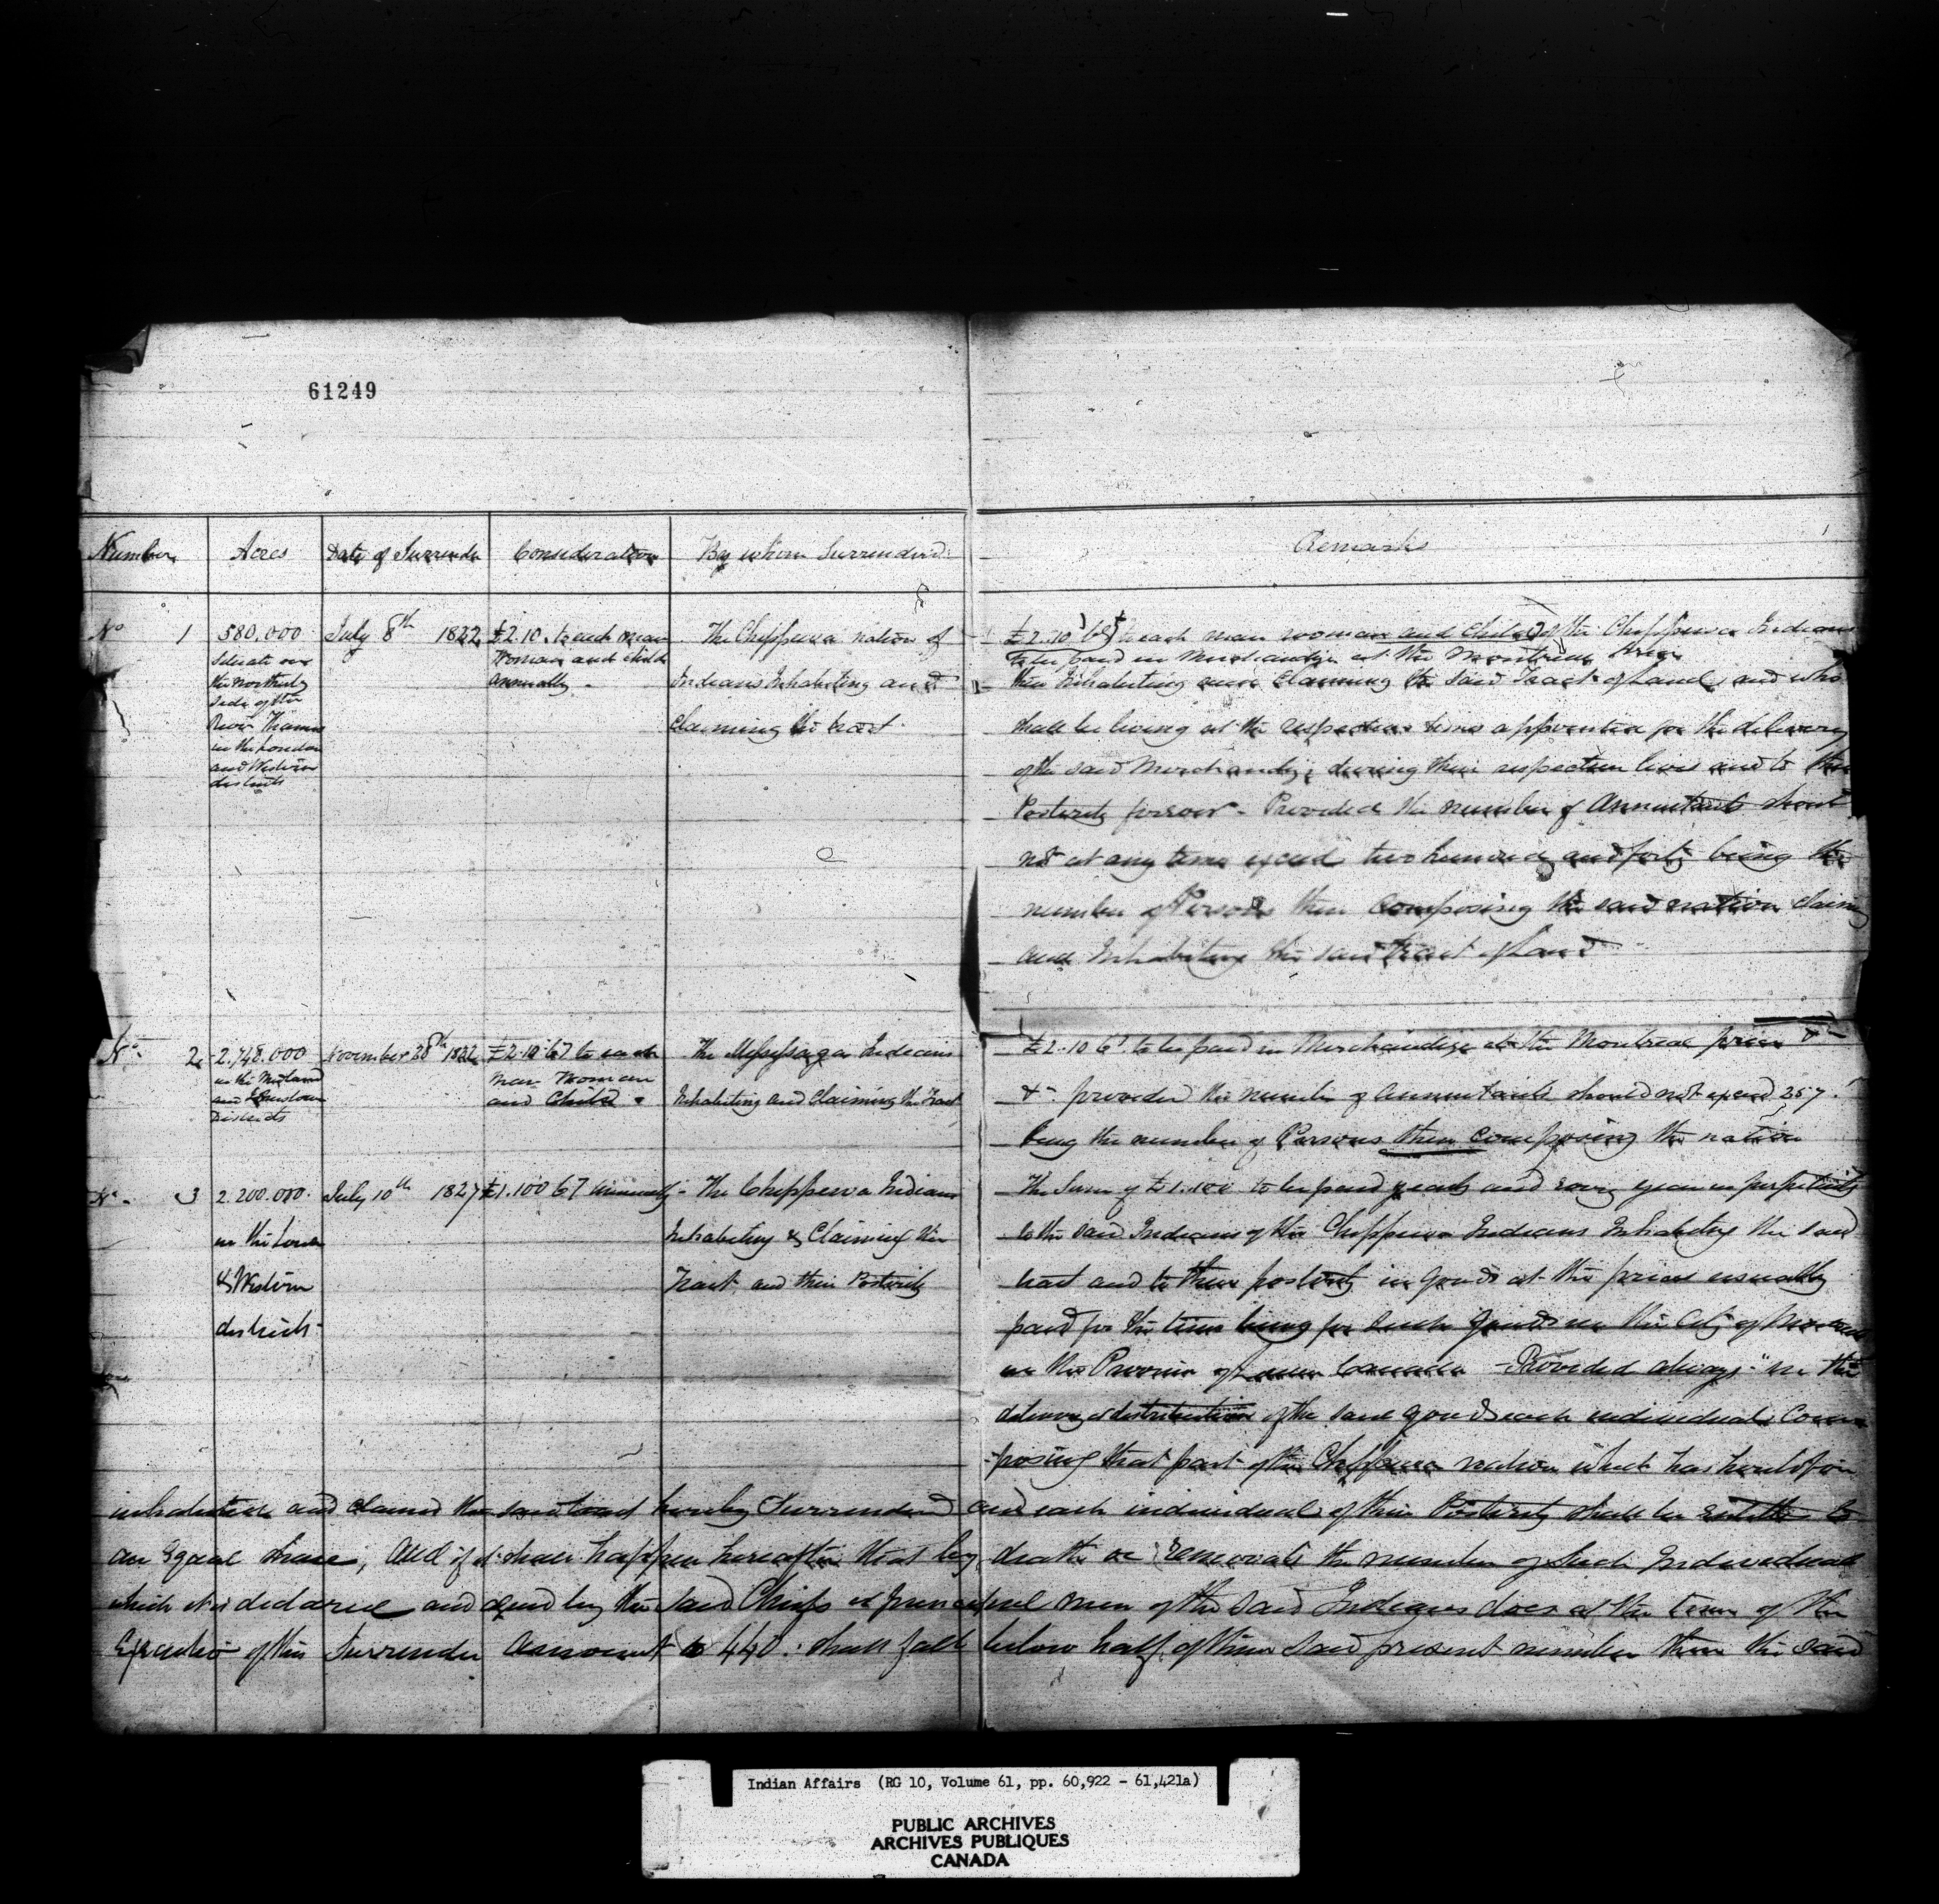 61249
Number Acres Date of Surrender Consideration By whom Surrendered Remarks
No 1
580.000
Situate on
the Northerly
Side of the
River Thames
in the London
and Western
districts
July 8th 1822
£2.10. to each man
Woman and child
annually -
The Chippewa nation of
Indians Inhabiting and
Claiming the tract
£2.10 to each man woman and child of the Chippewa Indians
to be paid in Merchandize at the Montreal
then Inhabiting and Claiming the said Tract of Land, and who
shall be living at the respective times appointed for the delivery
of the said Merchandize during their respective lives and to their
Posterity forever - Provided the number of Annuitants should
not at any time exceed two hundred and forty being the
number of Persons then Composing the said nation claiming
and Inhabiting the said tract of Land
No 2
2.748.000
in the Midland
and Districts
November 28th 1822
£2.10 to each
man Woman
and Child
The Messissaga Indians
Inhabiting and Claiming the Tract
£2.10 to be paid in Merchandize at the Montreal price &c
&c provided the number of annuitants should not exceed 257.
being the number of Persons then composing the nation
No 3
2.200.000.
in the
& Western
districts -
July 10th 1827
£1.100 Annually -
The Chippewa Indians
Inhabiting & Claiming the
Tract and their Posterity
The Sum of £1.100 to be paid each and every year in perpetuity
to the said Indians of the Chippewa Indians Inhabiting the said
tract and to their posterity in goods at the price usually
paid for the time being for such goods in the City of Montreal
in the Province of Lower Canada - Provided always "in the
delivery or distribution of the said goods each individual Com
-posing that part of the Chippewa nation which has heretofore
inhabited and claimed the said tract hereby Surrendered and each individual of their Posterity shall be entitled to
an Equal share; And if it shall happen hereafter that by death or removals the number of such Individuals
which it is declared and agreed by the said Chiefs & principal men of the said Indians does at the time of the
Execution of this Surrender amount to 440. shall fall below half of their said present number then the said
Indian Affairs (RG 10, Volume 61, pp. 60,922 - 61,421a)
PUBLIC ARCHIVES
ARCHIVES PUBLIQUES
CANADA